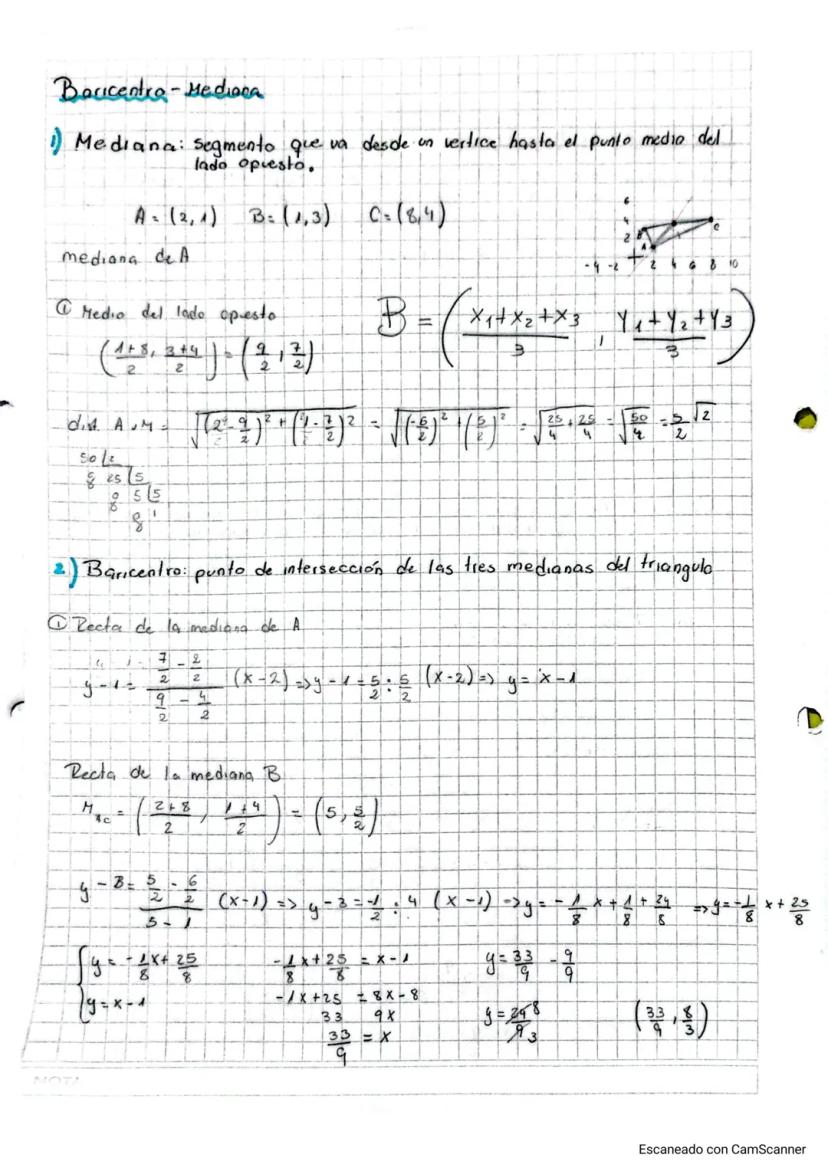 Baricentro - Mediana
1) Mediana: segmento que va desde un vertice hasta el punto medio del
lado opuesto.
A = (2,1) B = (1,3) C = (8,4)
6
4
2
B
A
C
-4 -2 2 4 6 8 10
mediana de A
① Medio del lado opuesto
B = (x1+x2+x3/3, y1+y2+y3/3)
(1+8/2, 3+4/2) = (9/2, 7/2)
dist. A, M = √((2-9/2)² + (1-7/2)²) = √((-5/2)² + (5/2)²) = √(25/4 + 25/4) = √(50/4) = 5/2 √2
50 | 2
0 25 | 5
0 5 | 5
0 1
2) Baricentro: punto de intersección de las tres medianas del triangulo
① Recta de la mediana de A
y - 1 = (7/2 - 2/2)/(9/2 - 4/2) (x-2) => y - 1 = 5/2 : 5/2 (x-2) => y = x - 1
Recta de la mediana B
M AC = (2+8/2, 1+4/2) = (5, 5/2)
y - 3 = (5/2 - 6/2)/(5 - 1) (x-1) => y - 3 = -1/2 : 4 (x-1) => y = -1/8 x + 1/8 + 24/8 => y = -1/8 x + 25/8
{ y = -1/8 x + 25/8
y = x - 1
-1/8 x + 25/8 = x - 1
-1x + 25 = 8x - 8
33 9x
33/9 = x
y = 33/9 - 9/9
y = 24/9 8/3
(33/9, 8/3)
NOTA
Escaneado con CamScanner